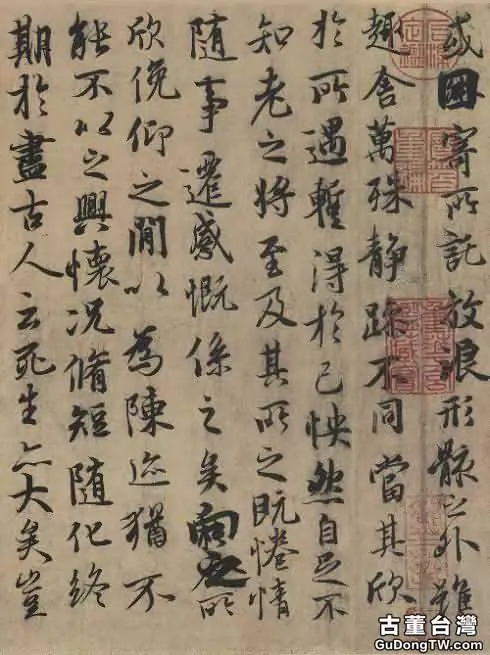 或因寄所託放浪形骸之外雖
趣舍萬殊静躁不同當其欣
於所遇蹔得於己怏然自足不
知老之將至及其所之既惓情
随事遷感慨係之矣向之所
欣俛仰之閒以為陳迹猶不
能不以之興懷况脩短随化終
期於盡古人云死生亦大矣豈
古董台灣
GuDongTW.com